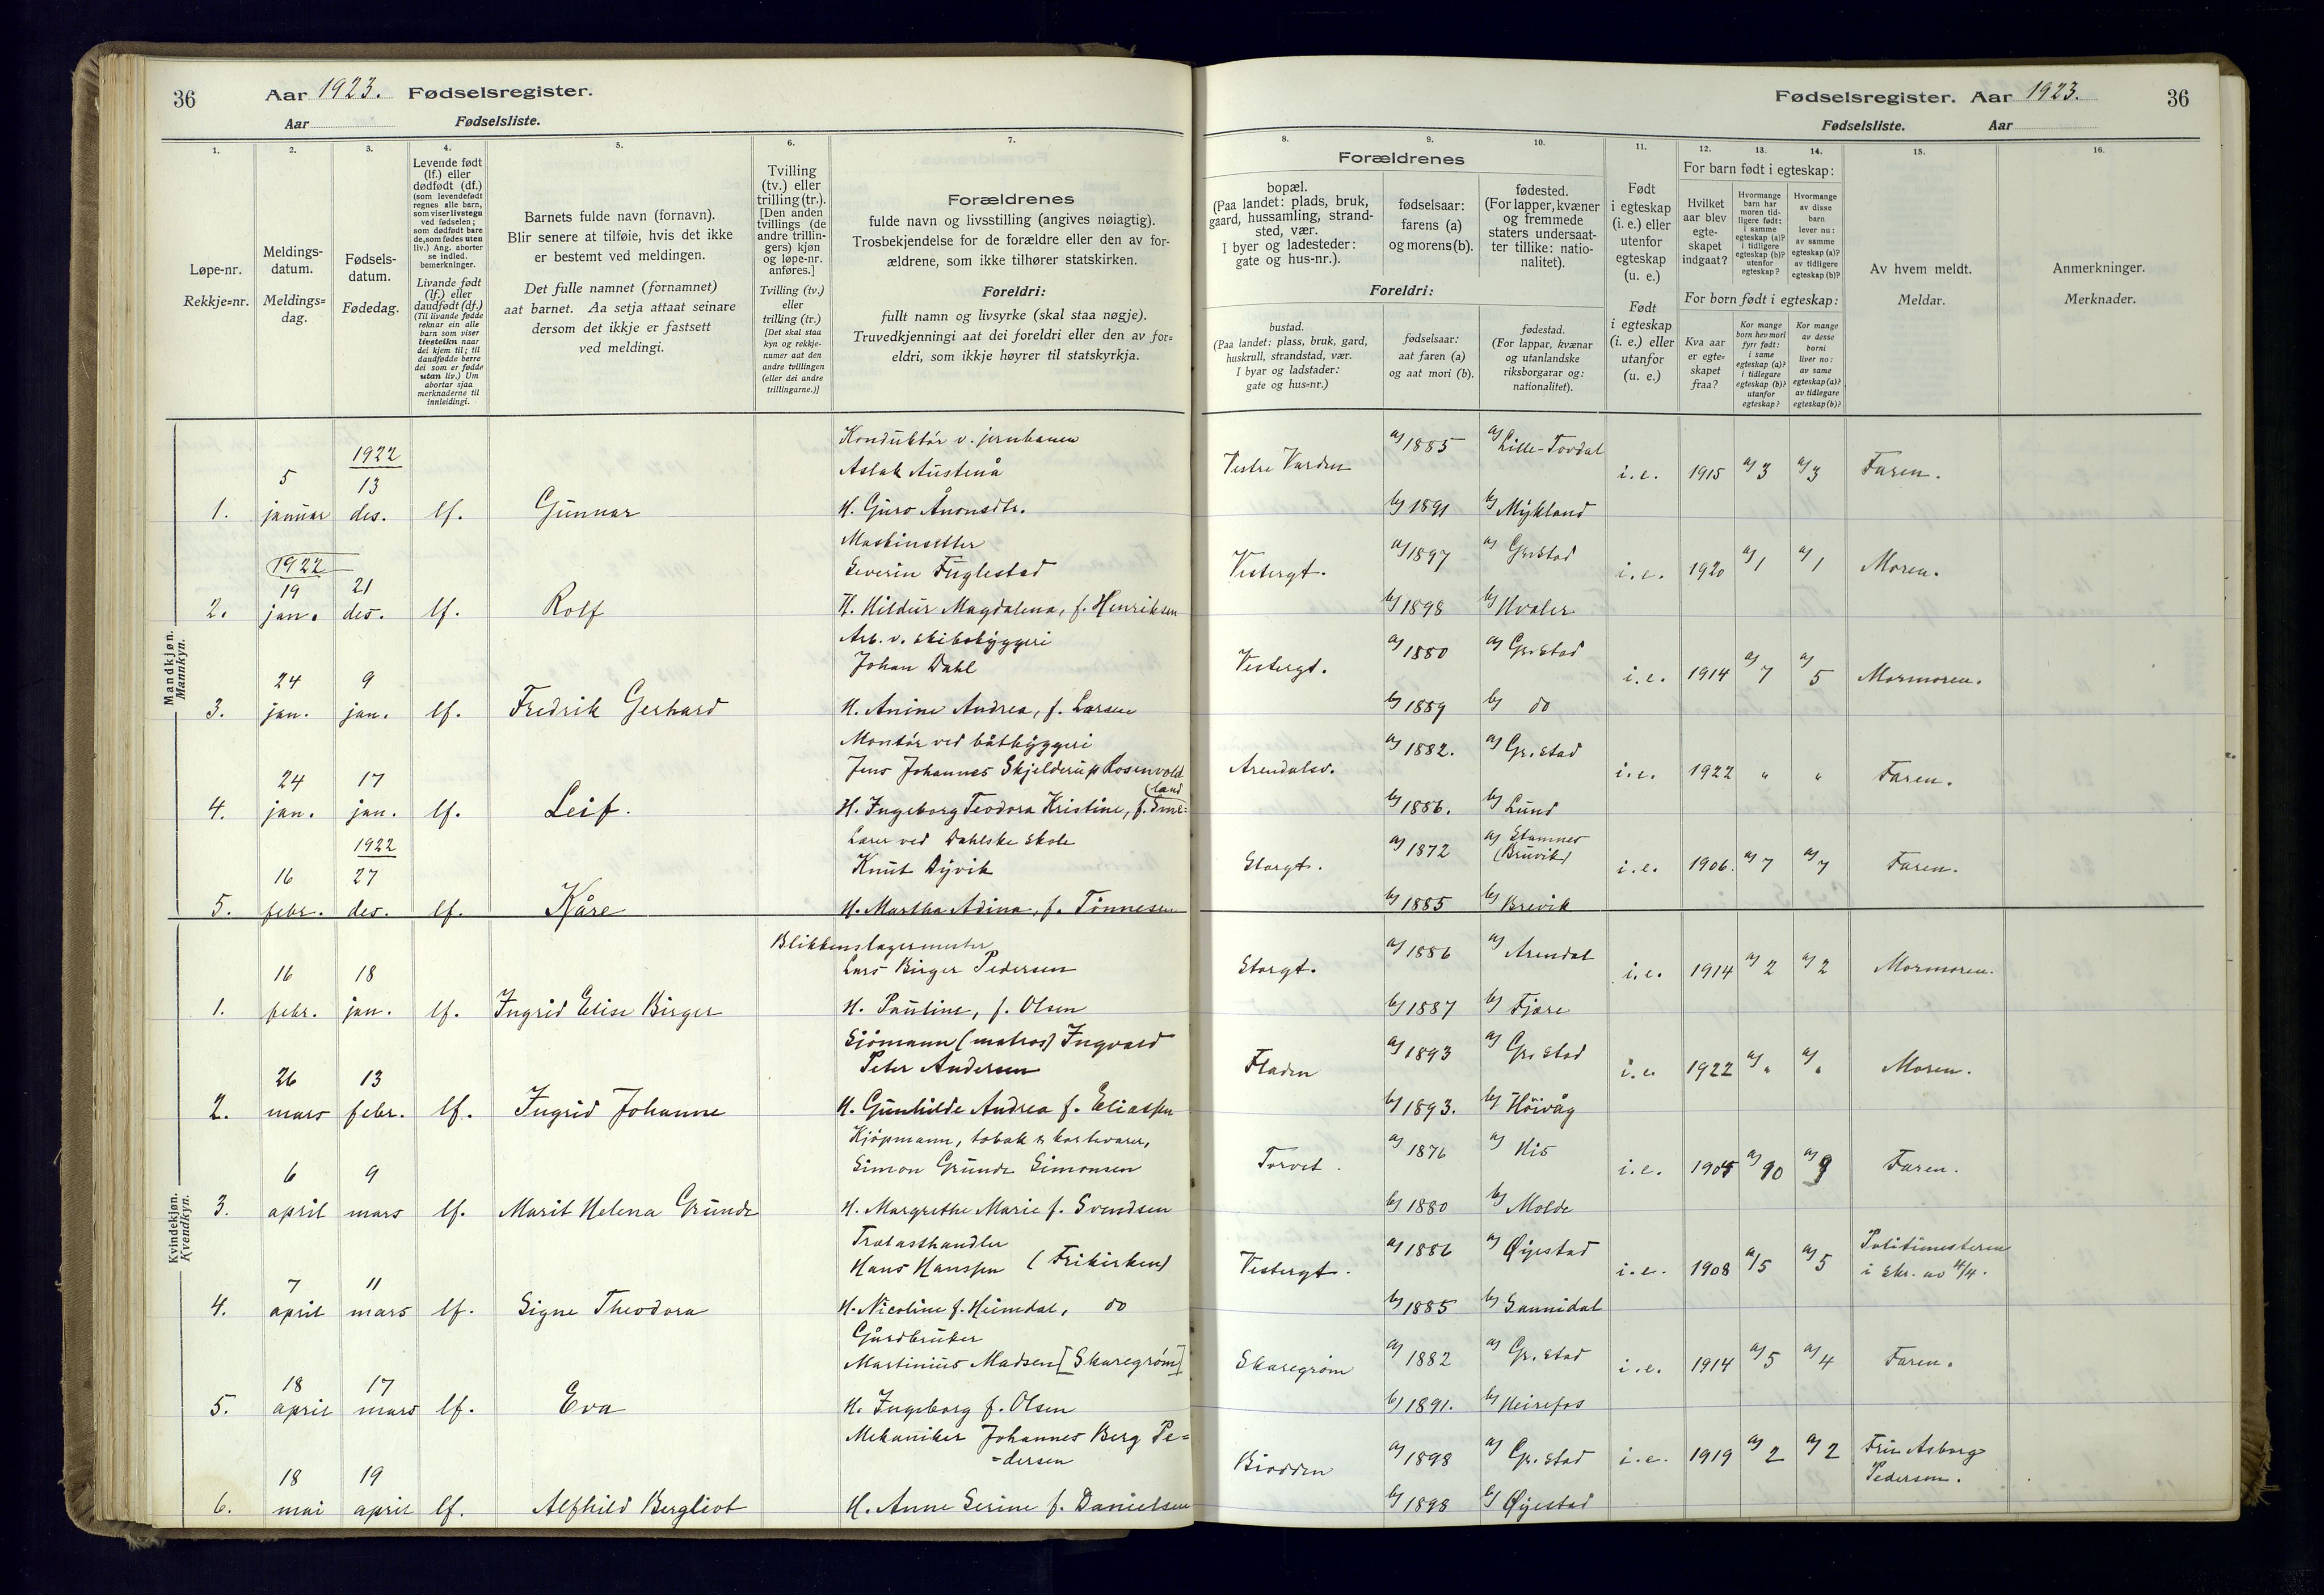 36
Aar 1923. Fødselsregister.
Aar Fødselsliste.
1.
2.
3.
4.
5.
6.
7.
Løpe-nr.
Rekkje=nr.
Meldings-
datum.
Meldings=
dag.
Fødsels-
datum.
Fødedag.
Levende født
(lf.) eller
dødfødt (df.)
(som levendefødt
regnes alle barn,
som viser livstegn
ved fødselen;
som dødfødt bare
de, som fødes uten
liv.) Ang. aborter
se indled.
bemerkninger.
Livande født
(lf.) eller
daudfødt (df.)
(Til livande fødde
reknar ein alle
barn som viser
livsteikn naar
dei kjem til; til
daudfødde berre
dei som er fødde
utan liv.) Um
abortar sjaa
merknaderne til
innleidingi.
Barnets fulde navn (fornavn).
Blir senere at tilføie, hvis det ikke
er bestemt ved meldingen.
Det fulle namnet (fornamnet)
aat barnet. Aa setja attaat seinare
dersom det ikkje er fastsett
ved meldingi.
Tvilling
(tv.) eller
trilling (tr.).
[Den anden
tvillings (de
andre trillin-
gers) kjøn
og løpe-nr.
anføres.]
Tvilling (tv.)
eller
trilling (tr.)
[Det skal staa
kyn og rekkje-
numer aat den
andre tvillingen
(eller dei andre
trillingarne.)]
Forældrenes
fulde navn og livsstilling (angives nøiagtig).
Trosbekjendelse for de forældre eller den av for-
ældrene, som ikke tilhører statskirken.
Foreldri:
fullt namn og livsyrke (skal staa nøgje).
Truvedkjenningi aat dei foreldri eller den av for=
eldri, som ikkje høyrer til statskyrkja.
Mandkjøn.
Mannkyn.
1. 5 januar 1922 13 des. lf. Gunnar
Konduktør v. jernbanen
Aslak Austenå
H. Guro Ånonsdtr.
2. 1922 19 jan. 21 des. lf. Rolf
Maskinsetter
Severin Fuglestad
H. Hildur Magdalena, f. Henriksen
3. 24 jan. 9 jan. lf. Fredrik Gerhard
Arb. v. skibsbyggeri
Johan Dahl
H. Anine Andrea, f. Larsen
4. 24 jan. 17 jan. lf. Leif.
Montør ved båtbyggeri
Jens Johannes Skjelderup Rosenvold
H. Ingeborg Teodora Kristine, f. Eme=
(land
5. 16 febr. 1922 27 des. lf. Kåre
Lærer ved Dahlske skole
Knut Dyvik
H. Martha Adina, f. Tønnesen
Kvindekjøn.
Kvendkyn.
1. 16 febr. 18 jan. lf. Ingrid Elise Birger
Blikkenslagermester
Lars Birger Pedersen
H. Pauline, f. Olsen
2. 26 mars 13 febr. lf. Ingrid Johanne
Sjömann (matros) Ingvard
Peter Andersen
H. Gunhilde Andrea f. Eliassen
3. 6 april 9 mars lf. Marit Helena Grunde
Kjøpmann, tobak & kortevarer,
Simon Grunde Simonsen
H. Margrethe Marie f. Svendsen
4. 7 april 11 mars lf. Signe Theodora
Trælasthandler
Hans Hanssen (Frikirken)
H. Nicoline f. Heimdal, do
5. 18 april 17 mars lf. Eva
Gårdbruker
Martinius Madsen [Skaregrøm]
H. Ingeborg f. Olsen
6. 18 mai 19 april lf. Alfhild Bergliot
Mekaniker Johannes Berg Pe=
=dersen
H. Anne Serine f. Danielsen
Fødselsregister. Aar 1923. 36
Fødselsliste. Aar
8.
9.
10.
11.
12.
13.
14.
15.
16.
Forældrenes
bopæl.
(Paa landet: plads, bruk,
gaard, hussamling, strand-
sted, vær.
I byer og ladesteder:
gate og hus-nr.).
fødselsaar:
farens (a)
og morens (b).
fødested.
(For lapper, kvæner
og fremmede
staters undersaat-
ter tillike: natio-
nalitet).
Foreldri:
bustad.
(Paa landet: plass, bruk, gard,
huskrull, strandstad, vær.
I byar og ladstader:
gate og hus=nr.)
fødselsaar:
aat faren (a)
og aat mori (b).
fødestad.
(For lappar, kvænar
og utanlandske
riksborgarar og:
nationalitet).
Født
i egteskap
(i. e.) eller
utenfor
egteskap
(u. e.)
Født
i egteskap
(i. e.) eller
utanfor
(u. e.)
For barn født i egteskap:
Hvilket
aar blev
egte-
skapet
indgaat?
Hvormange
barn har
moren tid-
ligere født:
i samme
egteskap (a)?
i tidligere
egteskap (b)?
utenfor
egteskap?
Hvormange
av disse
barn
lever nu:
av samme
egteskap (a)?
av tidligere
egteskap (b)?
For born født i egteskap:
Kva aar
er egte-
skapet
fraa?
Kor mange
born hev mori
fyrr født:
i same
egteskap (a)?
i tidlegare
egteskap (b)?
utanfor
egteskap?
Kor mange
av desse
borni
liver no:
av same
egteskap (a)?
av tidlegare
egteskap (b)?
Av hvem meldt.
Meldar.
Anmerkninger.
Merknader.
Vestre Varden a) 1885 a) Lille-Tovdal i.e. 1915 a) 3 a) 3 Faren.
b) 1891 b) Mykland
Vestergt. a) 1897 a) Gr.stad i.e. 1920 a) 1 a) 1 Moren.
b) 1898 b) Hvaler
Vestergt. a) 1880 a) Gr.stad i.e. 1914 a) 7 a) 5 Mormoren.
b) 1889 b) do
Arendalsv. a) 1882. a) Gr.stad i.e. 1922 " " Faren.
b) 1886. b) Lund
Storgt. a) 1872 a) Stamnes (Bruvik) i.e. 1906. a) 7 a) 7 Faren.
b) 1885 b) Brevik
Storgt. a) 1886 a) Arendal i.e. 1914 a) 2 a) 2 Mormoren.
b) 1887 b) Fjære
Fladen a) 1893 a) Gr.stad i.e. 1922 a) " a) " Moren.
b) 1893. b) Höivåg
Torvet. a) 1876 a) His i.e. a) 10 a) 9 Faren.
b) 1880 b) Molde
Vestergt. a) 1886 a) Øyestad i.e. 1908 a) 5 a) 5 Politimesteren
i skr. av 14/4.
b) 1885 b) Sannidal
Skaregrøm a) 1882 a) Gr.stad i.e. 1914 a) 5 a) 4 Faren.
b) 1891. b) Heirefos
Biodden a) 1898 a) Gr.stad i.e. 1919 a) 2 a) 2 Asborg
Pedersen.
b) 1898 b) Øyestad